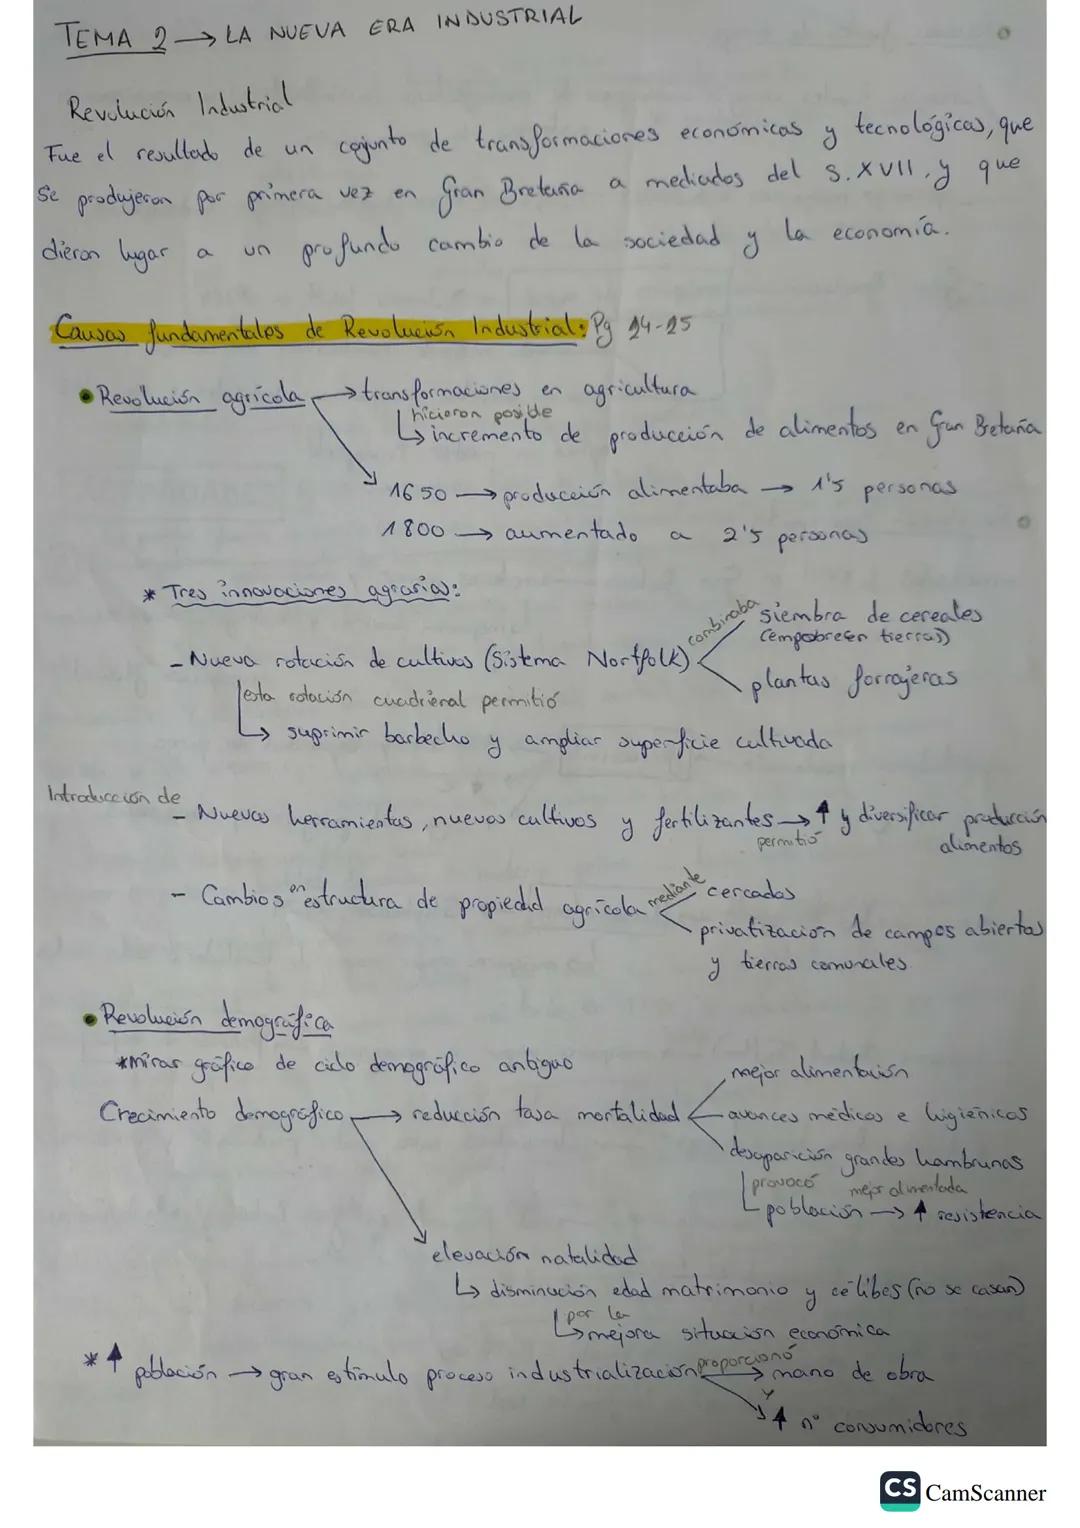 TEMA 2 → LA NUEVA ERA INDUSTRIAL
Revolución Industrial
Fue el resultado de un conjunto de transformaciones económicas y tecnológicas, que
se produjeron por primera vez en Gran Bretaña a mediados del S. XVII, y que
dieron lugar a un profundo cambio de la sociedad y la economía.
Causas fundamentales de Revolución Industrial: Pg 24-25
• Revolución agrícola → transformaciones en agricultura
hicieron posible
↳ incremento de producción de alimentos en Gran Bretaña
1650 → producción alimentaba → 1'5 personas
1800 → aumentado a 2'5 personas
* Tres innovaciones agrarias:
- Nueva rotación de cultivos (Sistema Nortfolk) combinaba siembra de cereales
(empobrecen tierras)
plantas forrajeras
esta rotación cuadrienal permitió
↳ suprimir barbecho y ampliar superficie cultivada
Introducción de
- Nuevas herramientas, nuevos cultivos y fertilizantes → ↑ y diversificar producción
permitió alimentos
- Cambios en estructura de propiedad agrícola mediante cercados
privatización de campos abiertos
y tierras comunales.
• Revolución demográfica
*mirar gráfico de ciclo demográfico antiguo
mejor alimentación
Crecimiento demográfico → reducción tasa mortalidad avances médicos e higiénicos
desaparición grandes hambrunas
provocó mejor alimentada
población → ↑ resistencia
elevación natalidad
↳ disminución edad matrimonio y célibes (no se casan)
por la
↳ mejora situación económica
* ↑ población → gran estímulo proceso industrialización proporcionó → mano de obra
y
↑ nº consumidores
CS CamScanner